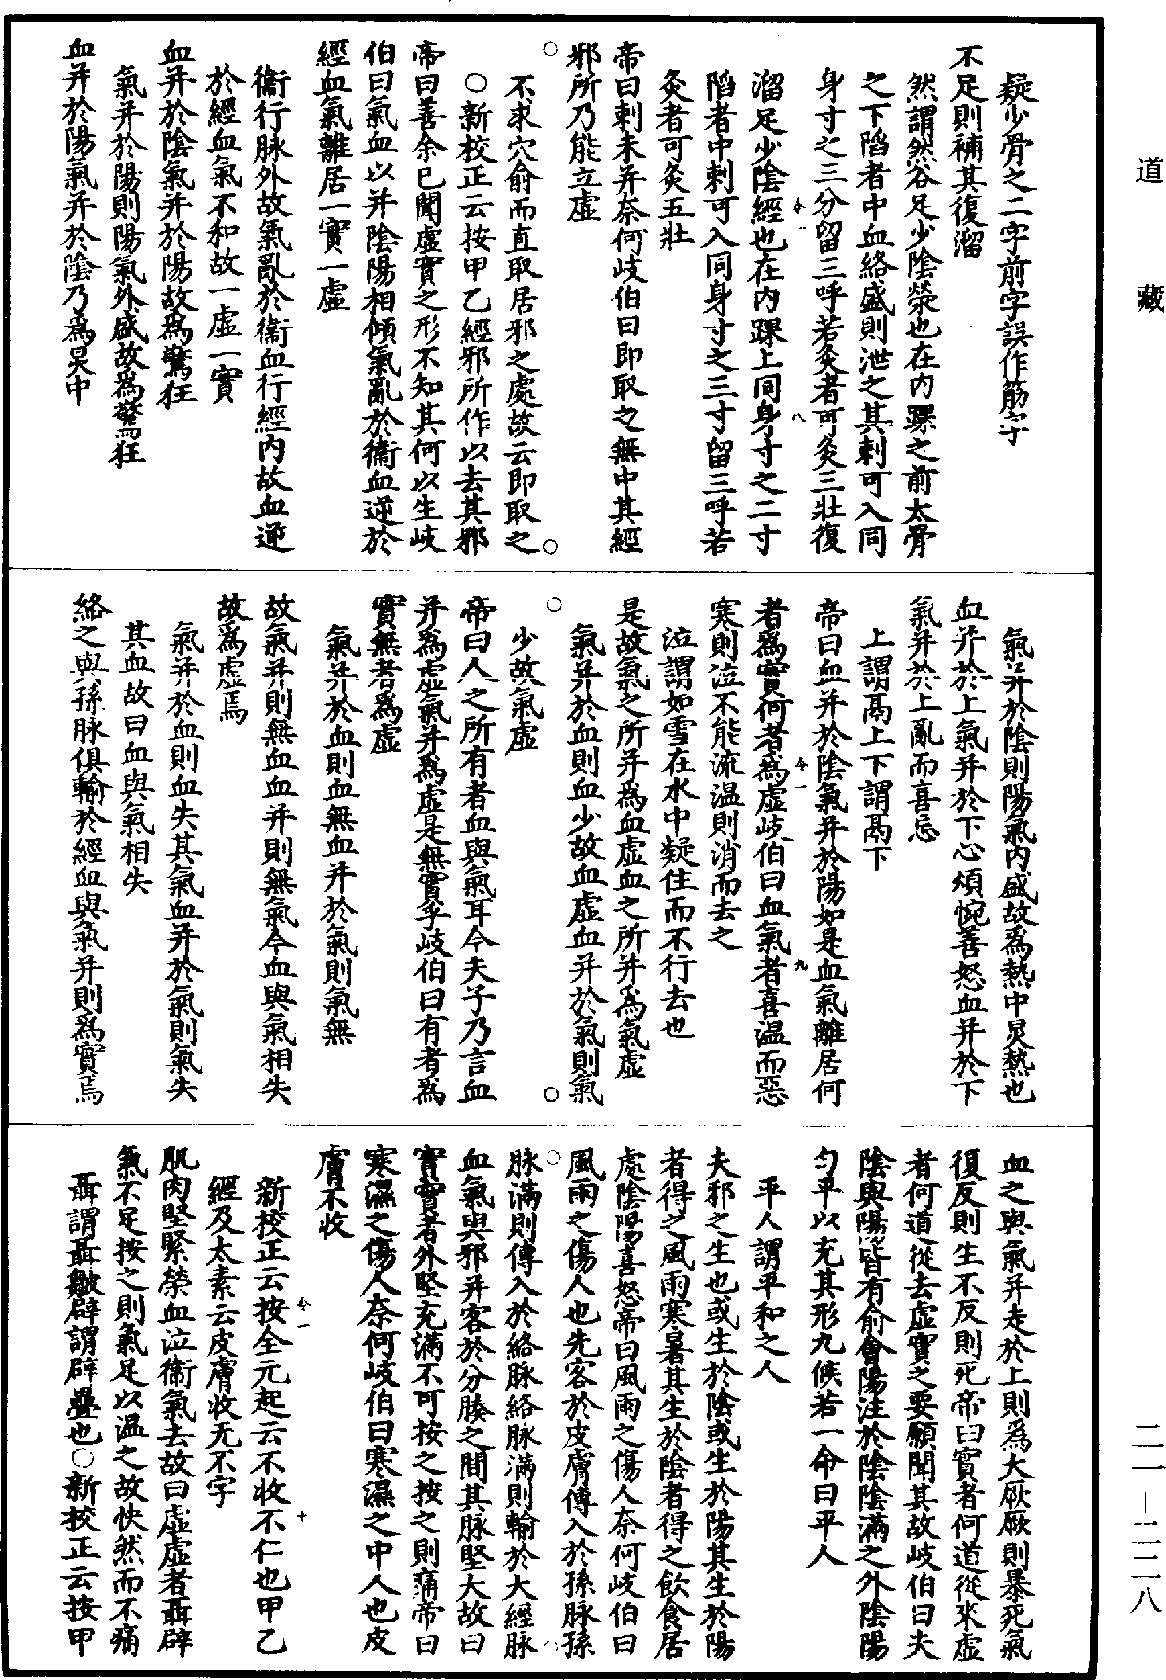 道藏
疑少骨之二字前字誤作筋字
不足則補其復溜
然謂然谷足少陰滎也在內踝之前太骨
之下陷者中血絡盛則泄之其刺可入同
身寸之三分留三呼若灸者可灸三壯復
溜足少陰經也在內踝上同身寸之二寸
陷者中刺可入同身寸之三寸留三呼若
灸者可灸五壯
帝曰刺未并奈何岐伯曰即取之無中其經
邪所乃能立虛
不求穴俞而直取居邪之處故云即取之
○新校正云按甲乙經邪所作以去其邪
帝曰善余已聞虛實之形不知其何以生岐
伯曰氣血以并陰陽相傾氣亂於衞血逆於
經血氣離居一實一虛
衞行脉外故氣亂於衞血行經內故血逆
於經血氣不和故一虛一實
血并於陰氣并於陽故爲驚狂
氣并於陽則陽氣外盛故爲驚狂
血并於陽氣并於陰乃爲炅中
氣并於陰則陽氣內盛故爲熱中炅熱也
血并於上氣并於下心煩惋善怒血并於下
氣并於上亂而喜忘
上謂鬲上下謂鬲下
帝曰血并於陰氣并於陽如是血氣離居何
者爲實何者爲虛岐伯曰血氣者喜温而惡
寒則泣不能流温則消而去之
泣謂如雪在水中凝住而不行去也
是故氣之所并爲血虛血之所并爲氣虛
氣并於血則血少故血虛血并於氣則氣
少故氣虛
帝曰人之所有者血與氣耳今夫子乃言血
并爲虛氣并爲虛是無實乎岐伯曰有者爲
實無者爲虛
氣并於血則血無血并於氣則氣無
故氣并則無血血并則無氣今血與氣相失
故爲虛焉
氣并於血則血失其氣血并於氣則氣失
其血故曰血與氣相失
絡之與孫脉俱輸於經血與氣并則爲實焉
血之與氣并走於上則爲大厥厥則暴死氣
復反則生不反則死帝曰實者何道從來虛
者何道從去虛實之要願聞其故岐伯曰夫
陰與陽皆有俞會陽注於陰陰滿之外陰陽
勻平以充其形九候若一命曰平人
平人謂平和之人
夫邪之生也或生於陰或生於陽其生於陽
者得之風雨寒暑其生於陰者得之飲食居
處陰陽喜怒帝曰風雨之傷人奈何岐伯曰
風雨之傷人也先客於皮膚傳入於孫脉孫
脉滿則傳入於絡脉絡脉滿則輸於大經脉
血氣與邪并客於分腠之間其脉堅大故曰
實實者外堅充滿不可按之按之則痛帝曰
寒濕之傷人奈何岐伯曰寒濕之中人也皮
膚不收
新校正云按全元起云不收不仁也甲乙
經及太素云皮膚收无不字
肌肉堅緊榮血泣衞氣去故曰虛虛者聶辟
氣不足按之則氣足以温之故快然而不痛
聶謂聶皺辟謂辟疊也○新校正云按甲
二一—二二八